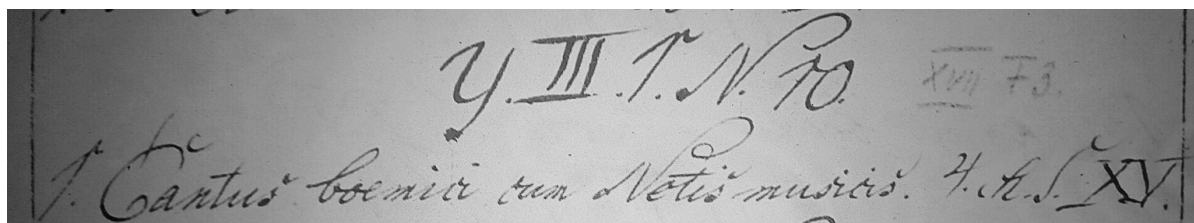 Y. III. 1. N. 70. XVII F 3.
1. Cantus boemici cum Notis musicis. 4. ch. S. XV.